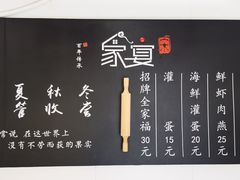 百年传承
家宴
夏管
秋收
冬尝
常说 在这世界上
没有不劳而获的果实
招牌全家福30元
灌蛋15元
海鲜灌蛋20元
鲜虾肉燕25元